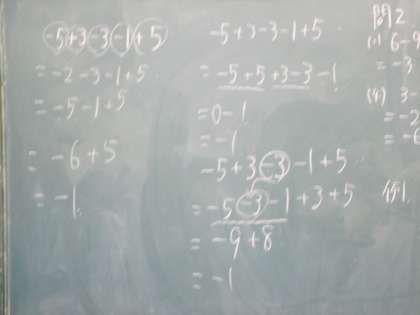 -5+3-3-1+5
=-2-3-1+5
=-5-1+5
=-6+5
=-1
-5+3-3-1+5
=-5+5+3-3-1
=0-1
=-1
-5+3-3-1+5
=-5-3-1+3+5
=-9+8
=-1
問2
(1) 6-9
=-3
(4) 3-
=-2
=-6
例1